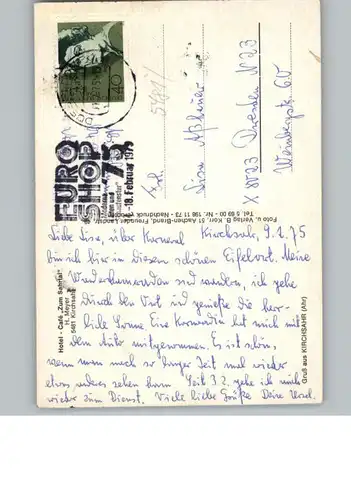 40
EURO
SHOP
75
-18. Februar 1975
Frl.
X 8023 Dresden N 23
Weinbergstr. 60
Foto u. Verlag B. Korr, 51 Aachen-Brand, Freunder Landstr.
Tel. 5 69 00 - Nr. 198 11 73 - Nachdruck
Hotel - Café „Zum Sahrtal"
H. Meyer
5481 Kirchsahr
Gruß aus KIRCHSAHR (Ahr)
Kirchsahr, 9.2.75
Liebe Lisa, über Karneval
bin ich hier in diesem schönen Eifelort. Meine
sind wandern, ich gehe
durch den Ort und genieße die herr-
liche Sonne. Eine hat mich mit
dem Auto mitgenommen. Es ist schön,
wenn man nach so langer Zeit mal wieder
etwas anderes sehen kann. Seit 3.2. gehe ich auch
wieder zum Dienst. Viele liebe Grüße Deine Ursel.